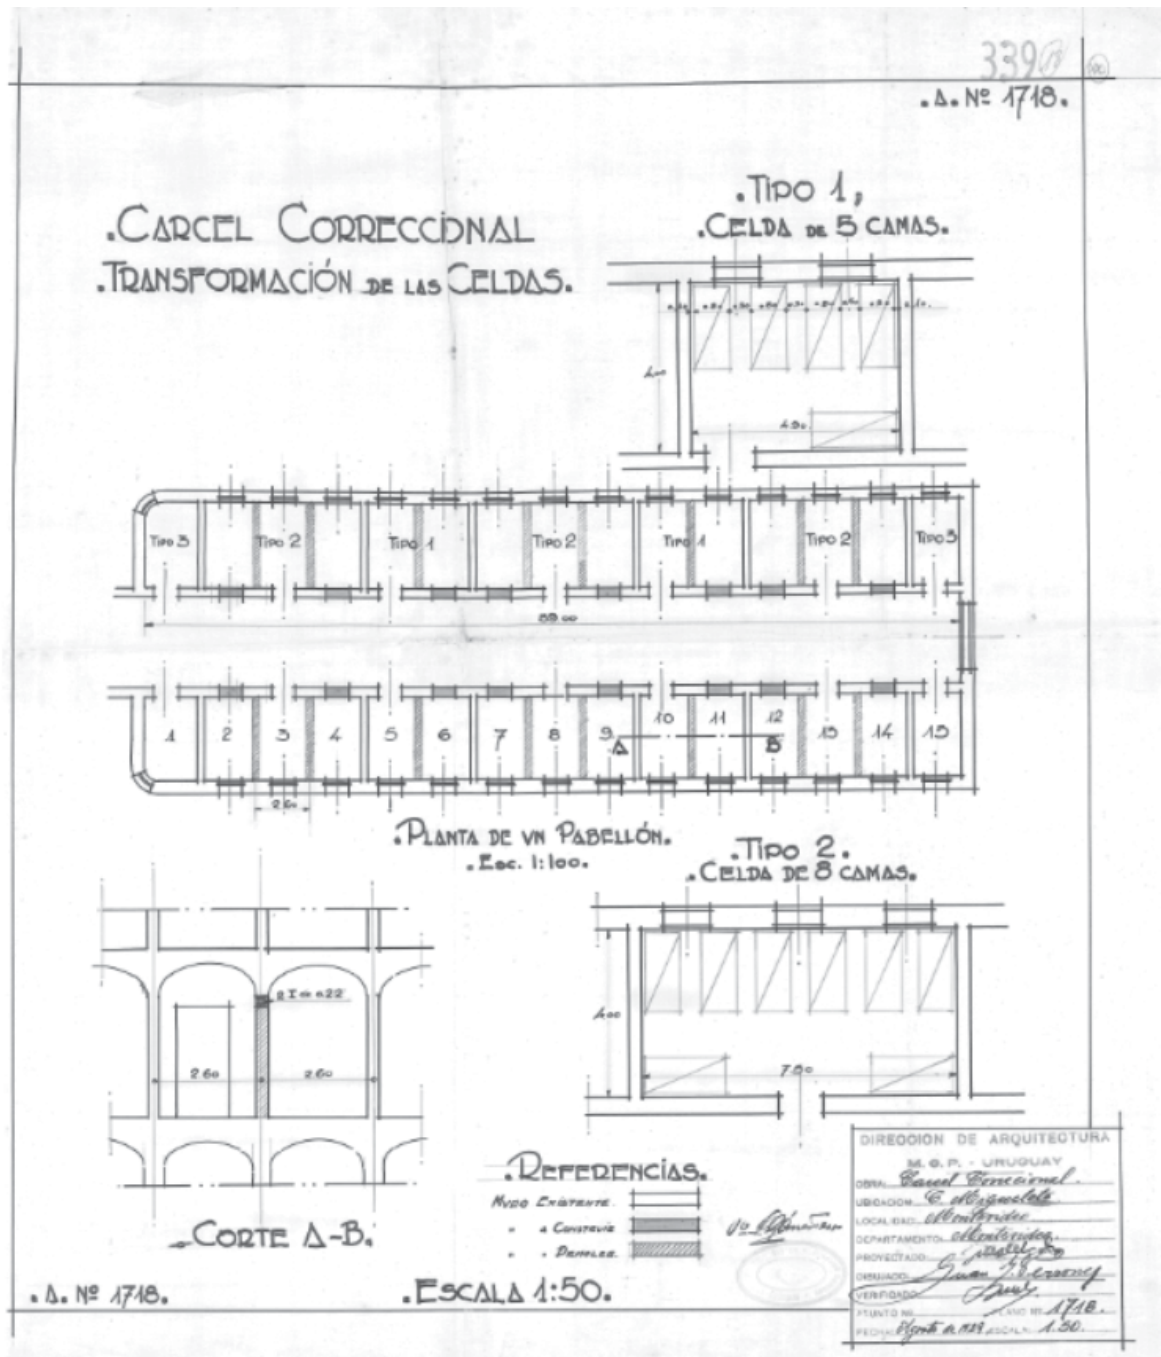 339
. A. Nº 1718.
. CARCEL CORRECCIONAL
. TRANSFORMACIÓN DE LAS CELDAS.
. TIPO 1,
. CELDA DE 5 CAMAS.
4.00
4.90.
TIPO 3 TIPO 2 TIPO 1 TIPO 2 TIPO 1 TIPO 2 TIPO 3
39.00
1 2 3 4 5 6 7 8 9 10 11 12 13 14 15
A B
2.60
. PLANTA DE VN PABELLÓN.
. Esc. 1:100.
. TIPO 2.
. CELDA DE 8 CAMAS.
4.00
7.50
2 I de 0.22
2.60 2.60
. CORTE A-B.
. REFERENCIAS.
MURO EXISTENTE.
" A CONSTRUIR
" " DEMOLER.
. ESCALA 1:50.
. A. Nº 1718.
DIRECCION DE ARQUITECTURA
M. O. P. - URUGUAY
OBRA: Carcel Correcional.
UBICACION: C. Miguelete
LOCALIDAD: Montevideo
DEPARTAMENTO: Montevideo.
PROYECTADO:
DIBUJADO: Juan
VERIFICADO:
ASUNTO Nº PLANO Nº 1718.
FECHA: Agosto de 1929 ESCALA: 1.50.